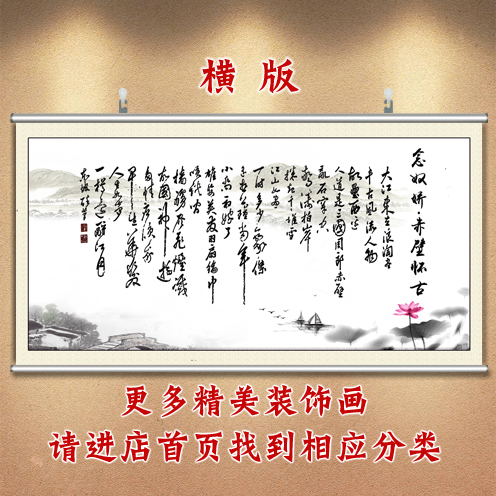 横版
念奴娇·赤壁怀古
大江东去浪淘尽
千古风流人物
故垒西边
人道是三國周郎赤壁
乱石穿空
惊涛拍岸
捲起千堆雪
江山如画
一时多少豪傑
遥想公瑾当年
小乔初嫁了
雄姿英发羽扇纶巾
谈笑间
樯橹灰飞烟灭
故国神游
多情应笑我
早生华发
人生如梦
一樽还酹江月
更多精美装饰画
请进店首页找到相应分类